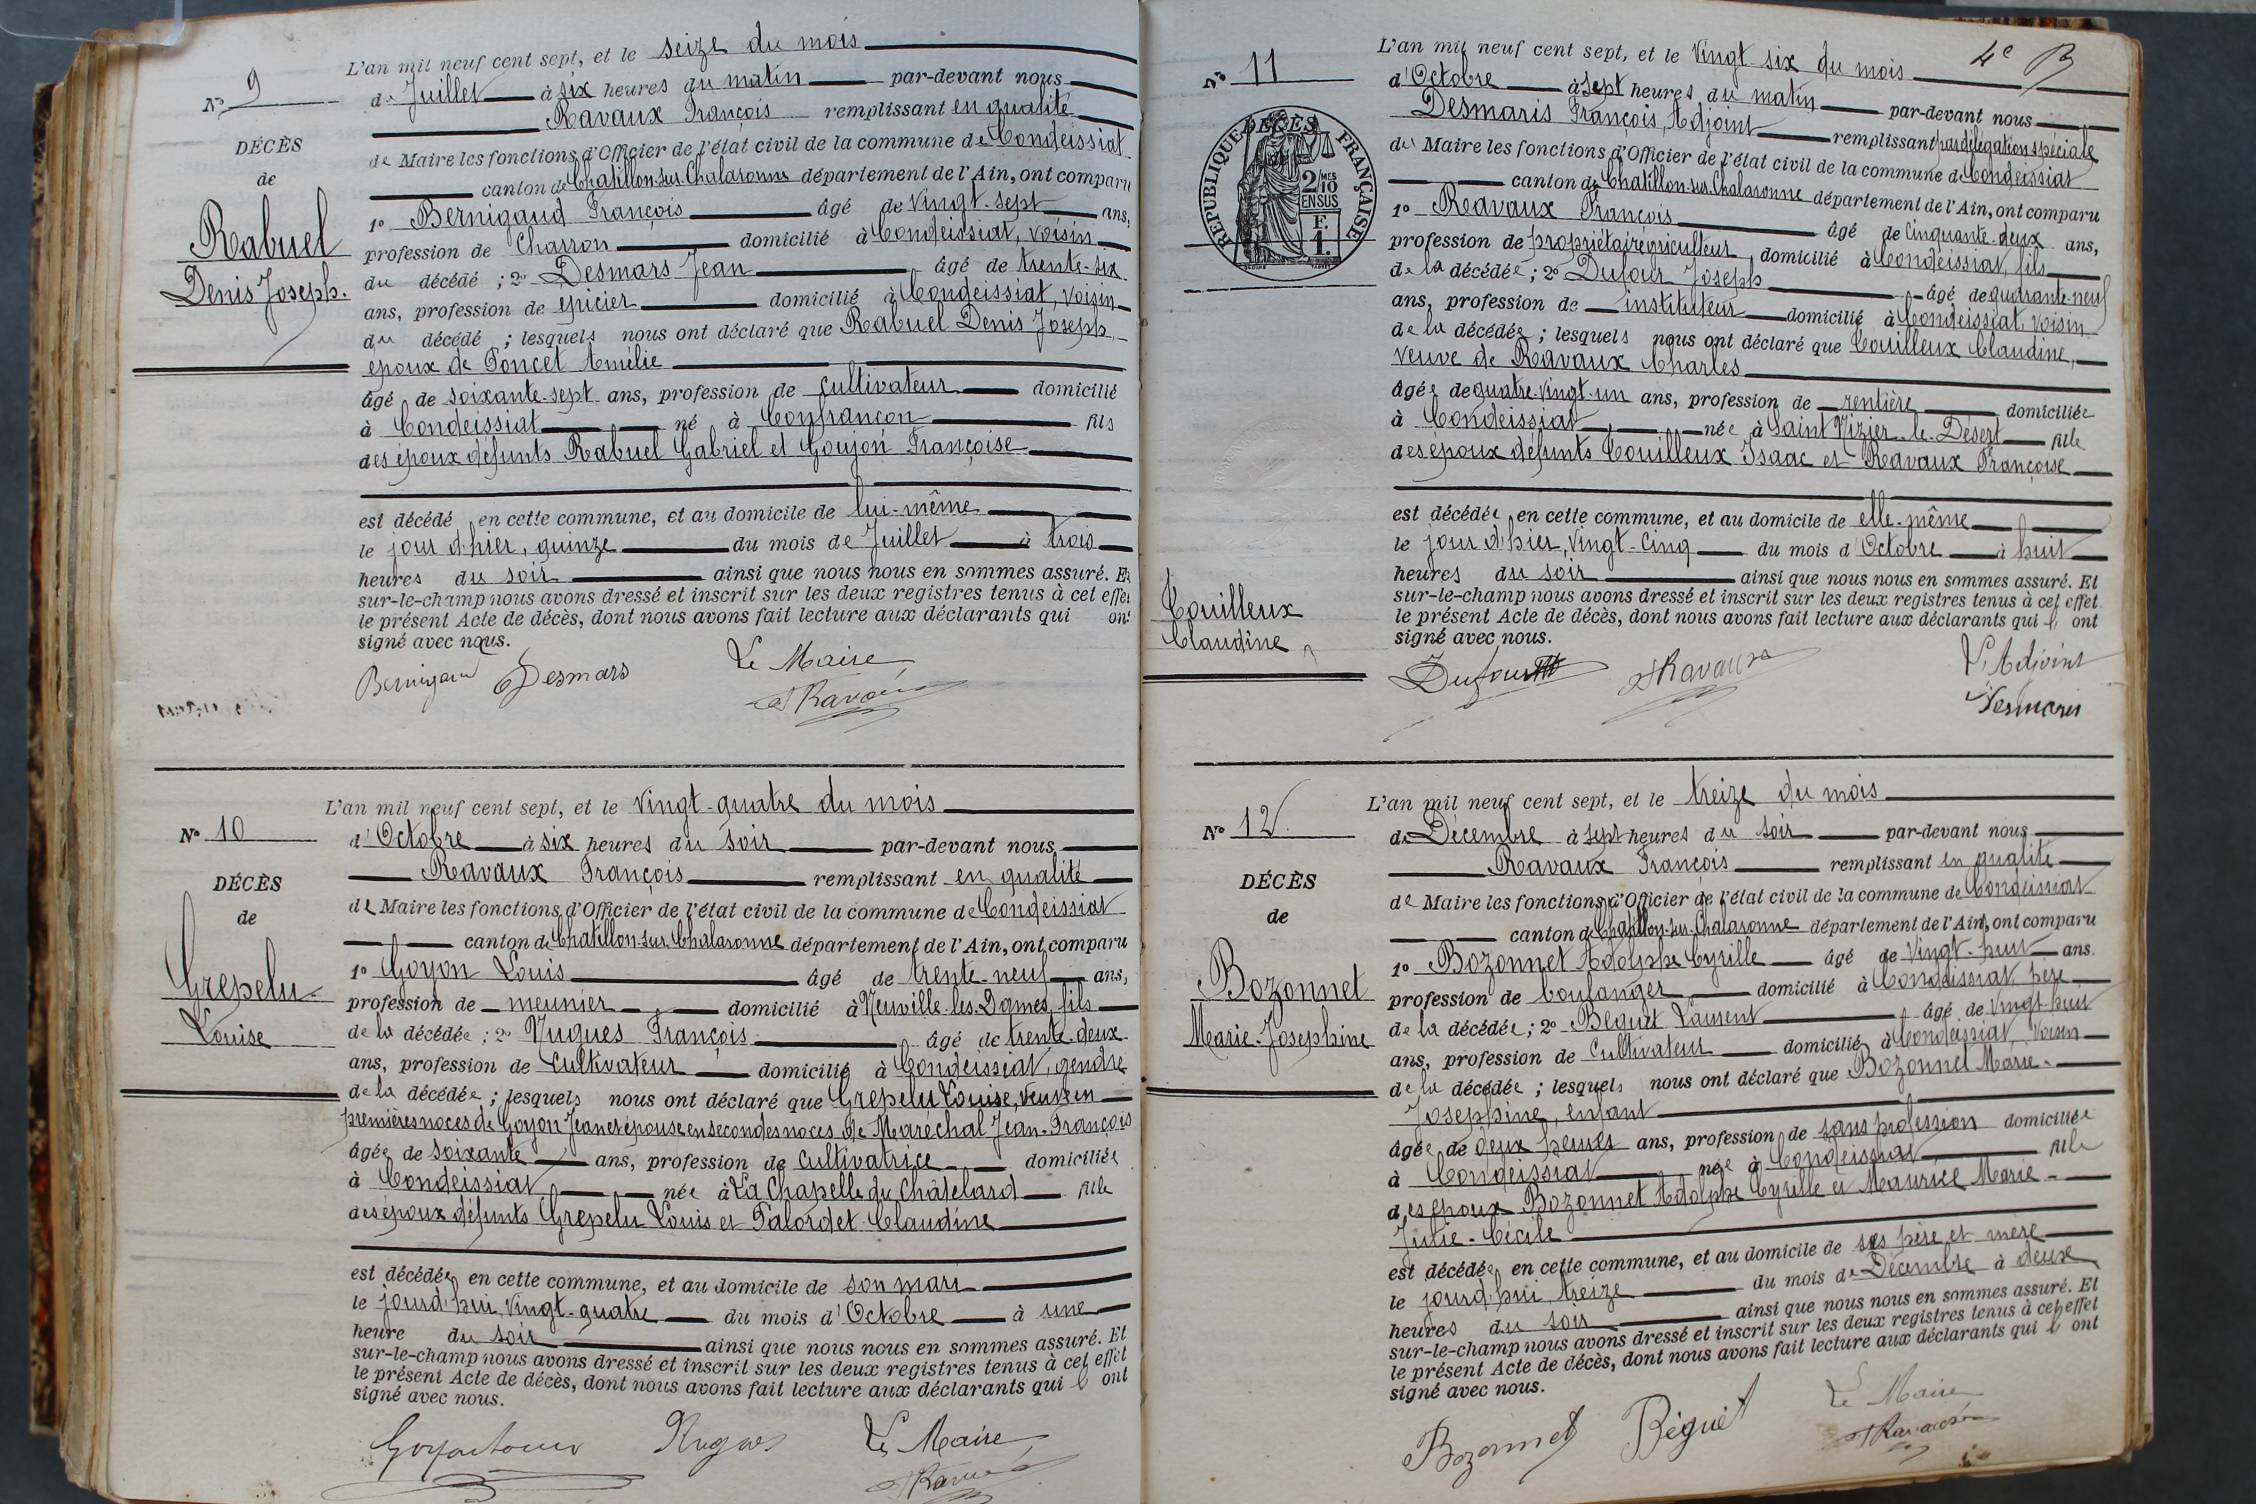 L'an mil neuf cent sept, et le seize du mois
N° 9
de Juillet à six heures du matin par-devant nous
Ravaux François remplissant en qualité
DÉCÈS
de Maire les fonctions d'Officier de l'état civil de la commune de Condeissiat
de
canton de Châtillon-sur-Chalaronne département de l'Ain, ont comparu
Rabuel
Denis Joseph.
1° Bernigaud François âgé de vingt-sept ans,
profession de charron domicilié à Condeissiat, voisin
du décédé ; 2° Desmars Jean âgé de trente-six
ans, profession de épicier domicilié à Condeissiat, voisin
du décédé ; lesquels nous ont déclaré que Rabuel Denis Joseph,
époux de Poncet Amélie
âgé de soixante-sept ans, profession de cultivateur domicilié
à Condeissiat né à Confrançon fils
des époux défunts Rabuel Gabriel et Goujon Françoise
est décédé en cette commune, et au domicile de lui-même
le jour d'hier, quinze du mois de Juillet à trois
heures du soir ainsi que nous nous en sommes assuré. Et
sur-le-champ nous avons dressé et inscrit sur les deux registres tenus à cet effet
le présent Acte de décès, dont nous avons fait lecture aux déclarants qui ont
signé avec nous.
Bernigaud Desmars Le Maire
Ravaux
L'an mil neuf cent sept, et le vingt-quatre du mois
N° 10
d'Octobre à six heures du soir par-devant nous
Ravaux François remplissant en qualité
DÉCÈS
de Maire les fonctions d'Officier de l'état civil de la commune de Condeissiat
de
canton de Châtillon-sur-Chalaronne département de l'Ain, ont comparu
Grepelu
Louise
1° Goyon Louis âgé de trente-neuf ans,
profession de meunier domicilié à Neuville-les-Dames, fils
de la décédée ; 2° Vugues François âgé de trente-deux
ans, profession de cultivateur domicilié à Condeissiat, gendre
de la décédée ; lesquels nous ont déclaré que Grepelu Louise, veuve en
premières noces de Goyon Jean et épouse en secondes noces de Maréchal Jean-François
âgée de soixante ans, profession de cultivatrice domiciliée
à Condeissiat née à La Chapelle du Châtelard fille
des époux défunts Grepelu Louis et Palordet Claudine
est décédée en cette commune, et au domicile de son mari
le jourd'hui vingt-quatre du mois d'Octobre à une
heure du soir ainsi que nous nous en sommes assuré. Et
sur-le-champ nous avons dressé et inscrit sur les deux registres tenus à cet effet
le présent Acte de décès, dont nous avons fait lecture aux déclarants qui ont
signé avec nous.
Le Maire
Ravaux
4e
L'an mil neuf cent sept, et le vingt-six du mois
N° 11
d'Octobre à sept heures du matin par-devant nous
Desmaris François, Adjoint remplissant par délégation spéciale
DÉCÈS
RÉPUBLIQUE FRANÇAISE
2/10 MES
EN SUS
F.
1.
de Maire les fonctions d'Officier de l'état civil de la commune de Condeissiat
canton de Châtillon-sur-Chalaronne département de l'Ain, ont comparu
1° Ravaux François âgé de cinquante-deux ans,
profession de propriétaire agriculteur domicilié à Condeissiat, fils
de la décédée ; 2° Dufour Joseph âgé de quarante-neuf
ans, profession de instituteur domicilié à Condeissiat, voisin
de la décédée ; lesquels nous ont déclaré que Couilleux Claudine,
veuve de Ravaux Charles
âgée de quatre-vingt-un ans, profession de rentière domiciliée
à Condeissiat née à Saint Nizier-le-Désert fille
des époux défunts Couilleux Isaac et Ravaux Françoise
est décédée en cette commune, et au domicile de elle-même
le jour d'hier, vingt-cinq du mois d'Octobre à huit
heures du soir ainsi que nous nous en sommes assuré. Et
sur-le-champ nous avons dressé et inscrit sur les deux registres tenus à cet effet
le présent Acte de décès, dont nous avons fait lecture aux déclarants qui ont
signé avec nous.
Couilleux
Claudine
Dufour Ravaux L'Adjoint
Desmaris
L'an mil neuf cent sept, et le treize du mois
N° 12
de Décembre à sept heures du soir par-devant nous
Ravaux François remplissant en qualité
DÉCÈS
de Maire les fonctions d'Officier de l'état civil de la commune de Condeissiat
de
canton de Châtillon-sur-Chalaronne département de l'Ain, ont comparu
Bozonnet
Marie-Josephine
1° Bozonnet Adolphe Cyrille âgé de vingt-huit ans.
profession de boulanger domicilié à Condeissiat père
de la décédée ; 2° Béguet Laurent âgé de vingt-huit
ans, profession de cultivateur domicilié à Condeissiat, voisin
de la décédée ; lesquels nous ont déclaré que Bozonnet Marie-
Josephine, enfant
âgée de deux heures ans, profession de sans profession domiciliée
à Condeissiat née à Condeissiat, fille
des époux Bozonnet Adolphe Cyrille et Maurice Marie-
Julie-Cécile
est décédée en cette commune, et au domicile de ses père et mère
le jourd'hui treize du mois de Décembre à deux
heures du soir ainsi que nous nous en sommes assuré. Et
sur-le-champ nous avons dressé et inscrit sur les deux registres tenus à cet effet
le présent Acte de décès, dont nous avons fait lecture aux déclarants qui ont
signé avec nous.
Bozonnet Béguet Le Maire
Ravaux